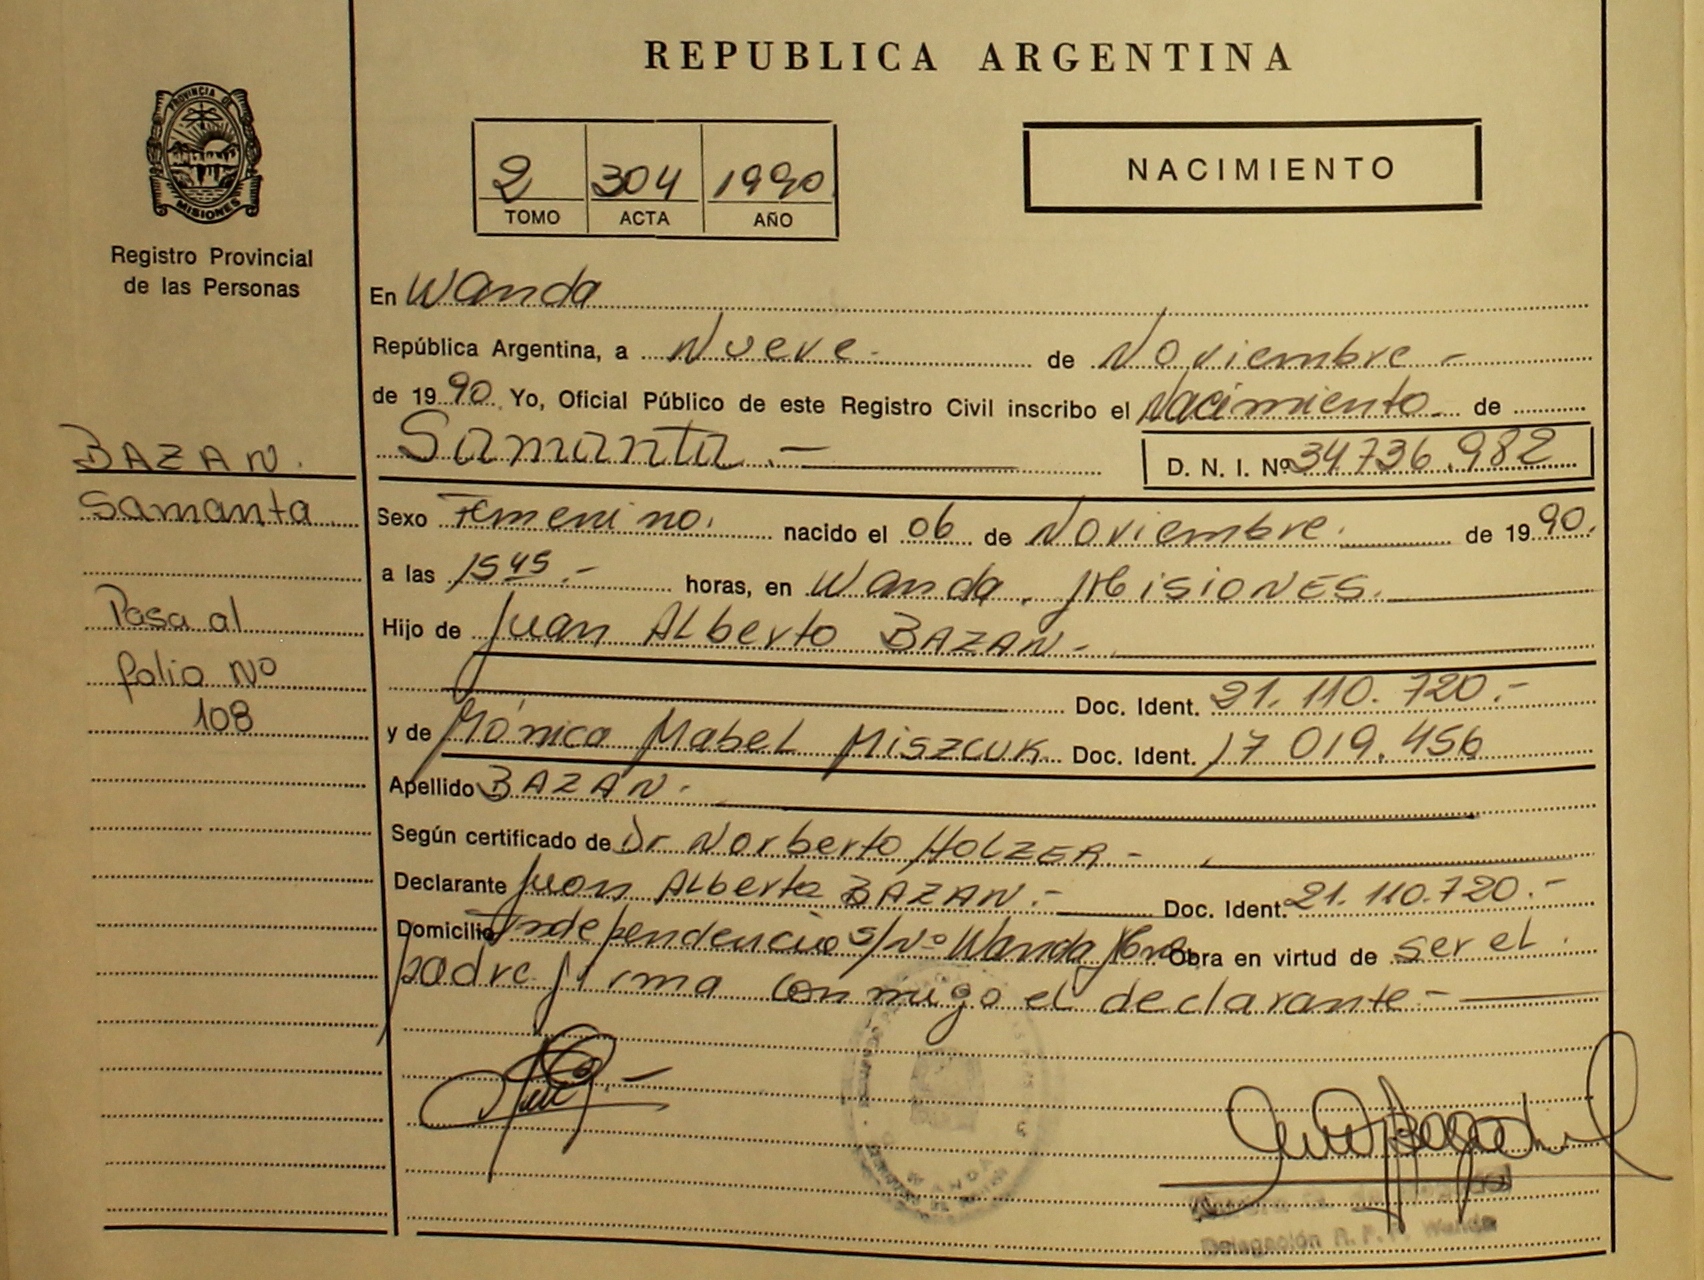 REPUBLICA ARGENTINA
PROVINCIA DE
MISIONES
Registro Provincial
de las Personas
2 304 1990
TOMO ACTA AÑO
NACIMIENTO
En Wanda
República Argentina, a Nueve.- de Noviembre -
de 1990. Yo, Oficial Público de este Registro Civil inscribo el Nacimiento de
Samanta.-
D. N. I. Nº 34736.982
BAZAN.
Samanta
Pasa al
folio Nº
108
Sexo Femenino. nacido el 06 de Noviembre. de 1990.
a las 15 45.- horas, en Wanda, MisioNES.
Hijo de Juan ALberto BAZAN-
Doc. Ident. 21.110.720.-
y de Mónica Mabel Miszcuk Doc. Ident. 17 019.456
Apellido BAZAN.-
Según certificado de Dr Norberto HOLZER -
Declarante Juan ALberto BAZAN.- Doc. Ident. 21.110.720.-
Domicilio Independencia s/Nº Wanda Mnes. Obra en virtud de ser el
padre firma conmigo el declarante-
WANDA
Delegación R. P. P. Wanda